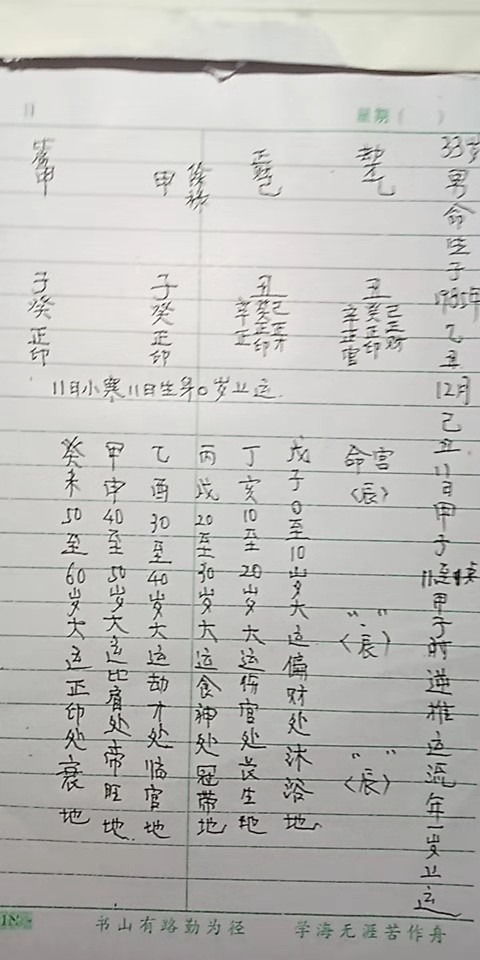 11
星期( )
33岁男命生于1985年乙丑12月己丑11日甲子11点甲子时逆推运流年一岁上运
劫才乙
正财己
日
甲
甲
丑
己正财
癸正印
辛正官
丑
己正才
癸正印
辛正
子癸正印
子癸正印
11日小寒11日生年0岁上运.
命宫〈辰〉
"."〈辰〉
" "〈辰〉
戊子0至10岁大运偏财处沐浴地
丁亥10至20岁大运伤官处长生地
丙戌20至30岁大运食神处冠带地
乙酉30至40岁大运劫才处临官地
甲申40至50岁大运比肩处帝旺地.
癸未50至60岁大运正印处衰地
书山有路勤为径 学海无涯苦作舟